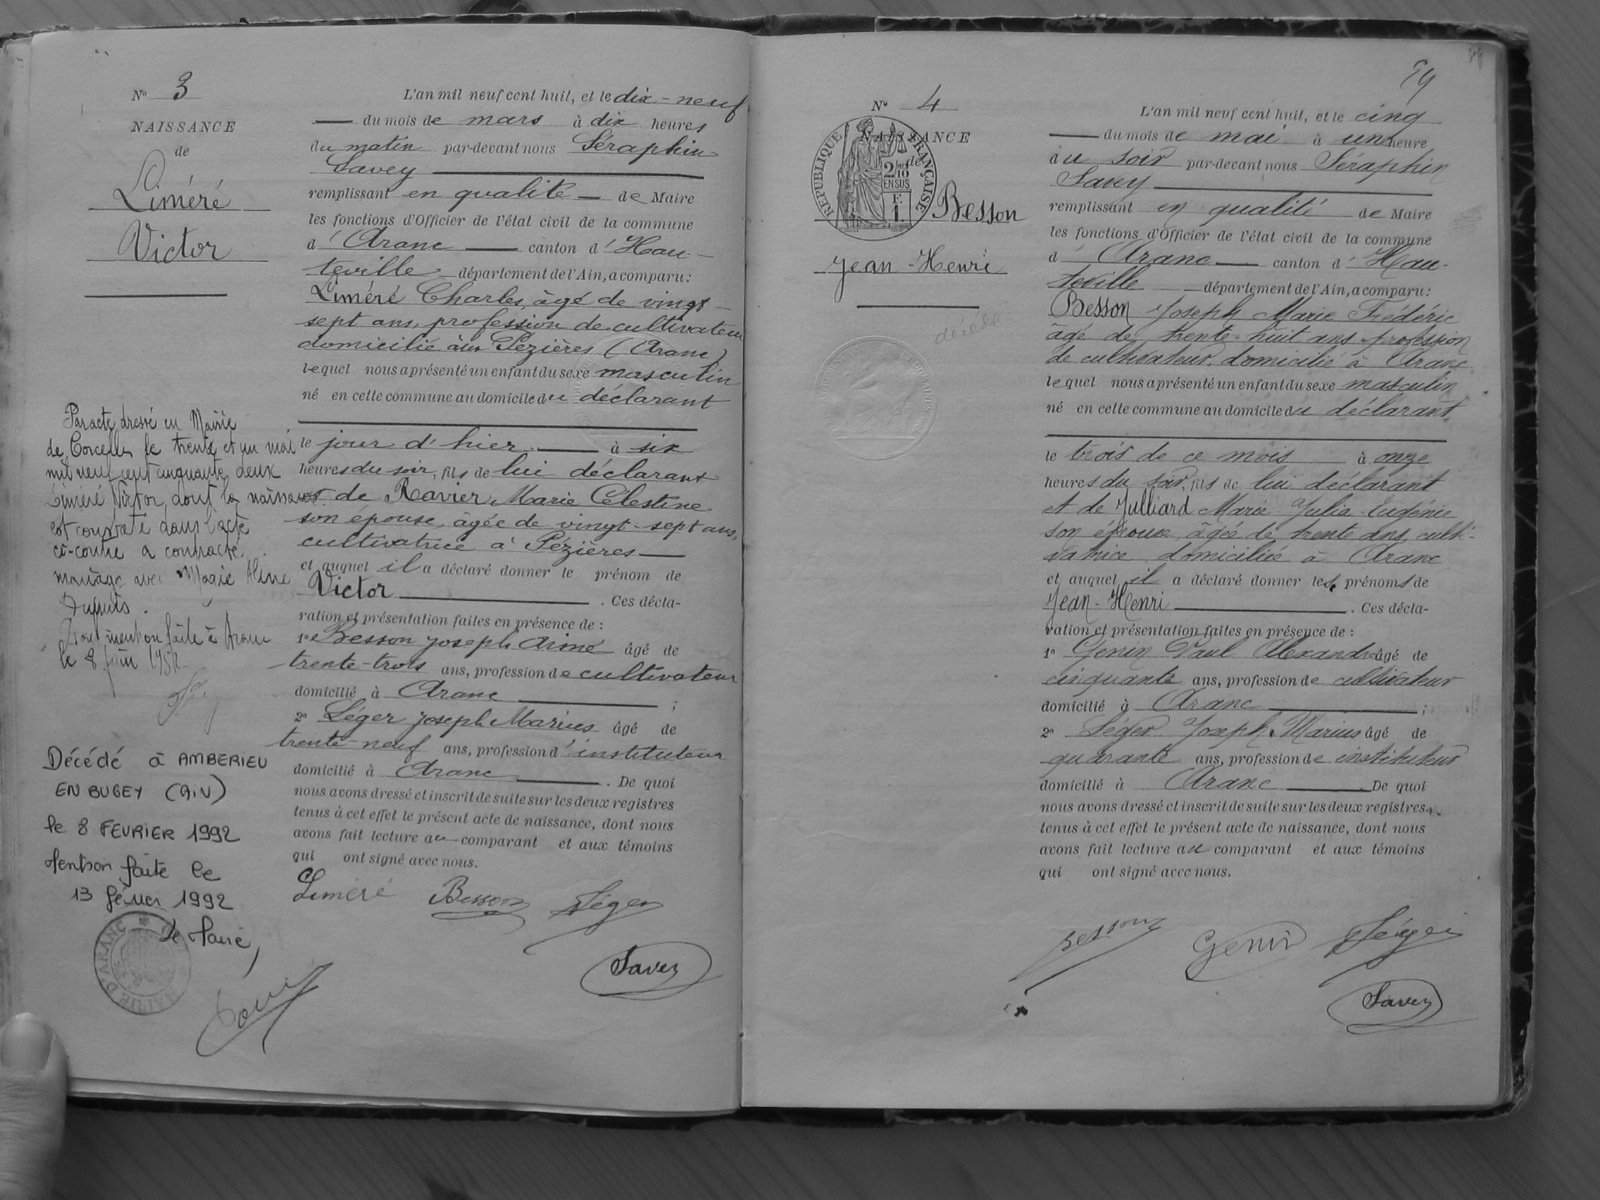 Nº 3
NAISSANCE
de
Liméré
Victor
L'an mil neuf cent huit, et le dix-neuf
du mois de mars à dix heures
du matin par-devant nous Séraphin
Savey
remplissant en qualité de Maire
les fonctions d'Officier de l'état civil de la commune
d'Aranc canton d'Hau-
teville département de l'Ain, a comparu:
Liméré Charles, âgé de vingt-
sept ans, profession de cultivateur
domicilié aux Pezières (Aranc)
lequel nous a présenté un enfant du sexe masculin
né en cette commune au domicile du déclarant
le jour d'hier à six
heures du soir, fils de lui déclarant
et de Ravier Marie Célestine
son épouse, âgée de vingt-sept ans,
cultivatrice à Pézières
et auquel il a déclaré donner le prénom de
Victor . Ces décla-
ration et présentation faites en présence de :
1º Besson Joseph Aimé âgé de
trente-trois ans, profession de cultivateur
domicilié à Aranc ;
2º Léger Joseph Marius âgé de
trente-neuf ans, profession d'instituteur
domicilié à Aranc . De quoi
nous avons dressé et inscrit de suite sur les deux registres
tenus à cet effet le présent acte de naissance, dont nous
avons fait lecture au comparant et aux témoins
qui ont signé avec nous.
Liméré Besson Léger
Savey
Par acte dressé en Mairie
de Corcelles le trente et un mai
mil neuf cent cinquante deux
Liméré Victor, dont la naissance
est constatée dans l'acte
ci-contre a contracté
mariage avec Marie Aline
Dupuis.
Dont mention faite à Aranc
le 8 juin 1952
Décédé à AMBERIEU
EN BUGEY (AIN)
le 8 FEVRIER 1992
Mention faite le
13 février 1992
Le Maire,
MAIRIE D'ARANC
79
Nº 4
NAISSANCE
de
RÉPUBLIQUE FRANÇAISE
2/10
EN SUS
Besson
Jean-Henri
L'an mil neuf cent huit, et le cinq
du mois de mai à une heure
du soir par-devant nous Séraphin
Savey
remplissant en qualité de Maire
les fonctions d'Officier de l'état civil de la commune
d'Aranc canton d'Hau-
teville département de l'Ain, a comparu:
Besson Joseph Marie Frédéric
âgé de trente-huit ans profession
de cultivateur, domicilié à Aranc
lequel nous a présenté un enfant du sexe masculin
né en cette commune au domicile du déclarant
le trois de ce mois à onze
heures du soir, fils de lui déclarant
et de Julliard Marie Julia Eugénie
son épouse âgée de trente ans culti-
vatrice domiciliée à Aranc
et auquel il a déclaré donner les prénoms de
Jean-Henri . Ces décla-
ration et présentation faites en présence de :
1º Genin Paul Alexandre âgé de
cinquante ans, profession de cultivateur
domicilié à Aranc ;
2º Léger Joseph Marius âgé de
quarante ans, profession de instituteur
domicilié à Aranc . De quoi
nous avons dressé et inscrit de suite sur les deux registres
tenus à cet effet le présent acte de naissance, dont nous
avons fait lecture au comparant et aux témoins
qui ont signé avec nous.
Besson Genin Léger
Savey